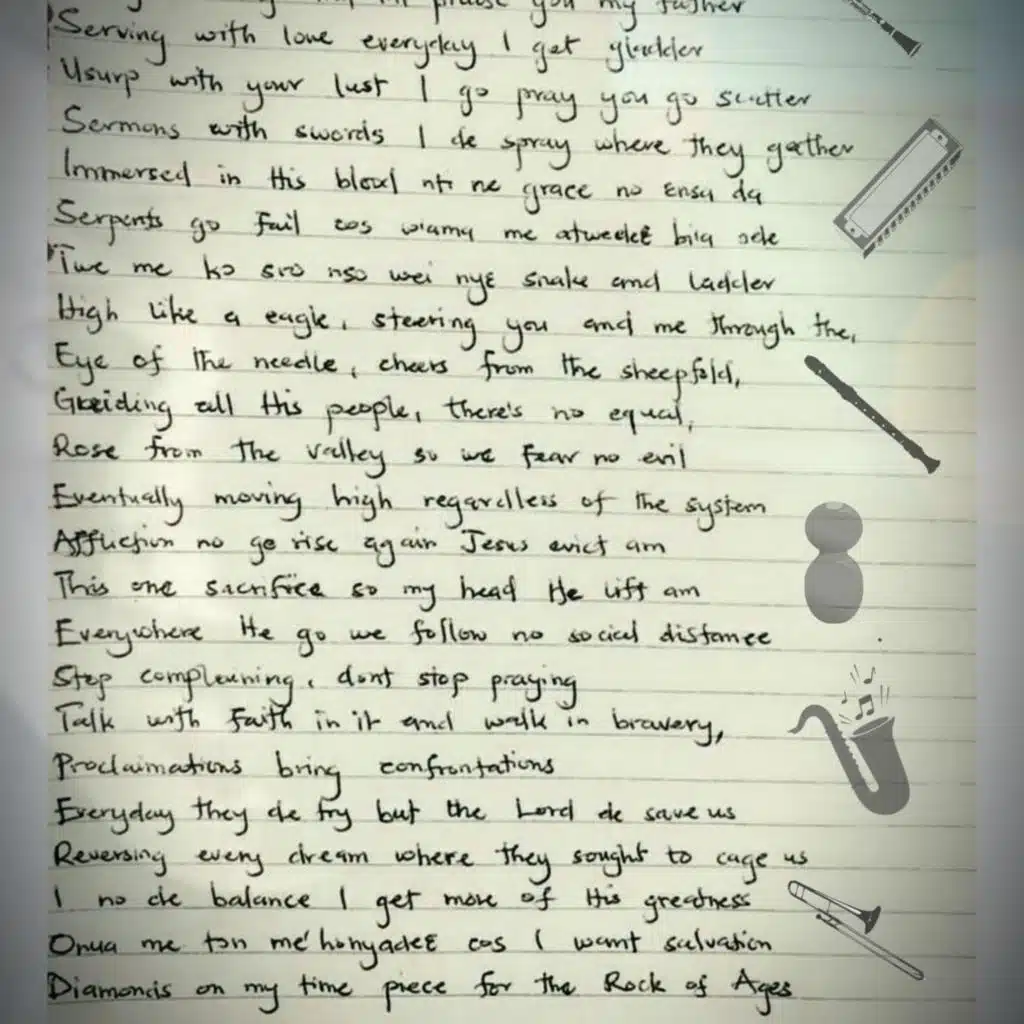 praise you my father
Serving with love everyday I get gladder
Usurp with your lust I go pray you go scatter
Sermons with swords I de spray where they gather
Immersed in His blood nti ne grace no ensa da
Serpents go fail cos wama me atweedeɛ bia sɛ
Twe me ko soro nso wei nyɛ snake and ladder
High like a eagle, steering you and me through the,
Eye of the needle, cheers from the sheepfold,
Guiding all His people, there's no equal,
Rose from the valley so we fear no evil
Eventually moving high regardless of the system
Affliction no go rise again Jesus evict am
This one sacrifice so my head He lift am
Everywhere He go we follow no social distance
Stop complaining, dont stop praying
Talk with faith in it and walk in bravery,
Proclaimations bring confrontations
Everyday they de try but the Lord de save us
Reversing every dream where they sought to cage us
I no de balance I get more of His greatness
Onua me ton me'honyadeɛ cos I want salvation
Diamonds on my time piece for the Rock of Ages